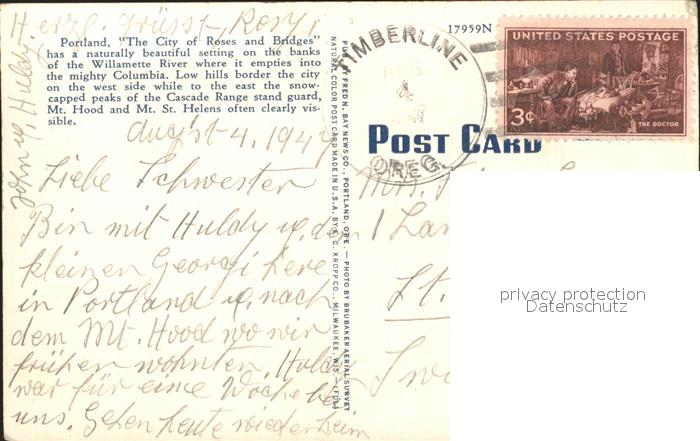 Herzl. Grüsst, Rosy,
John u, Huldy.
Portland, "The City of Roses and Bridges"
has a naturally beautiful setting on the banks
of the Willamette River where it empties into
the mighty Columbia. Low hills border the city
on the west side while to the east the snow-
capped peaks of the Cascade Range stand guard,
Mt. Hood and Mt. St. Helens often clearly vis-
ible.
August 4, 194
Liebe Schwester
Bin mit Huldy u, dem
kleinen Georgi here
in Portland u. nach
dem Mt. Hood wo wir
früher wohnten, Huldy
war für eine Woche bei
uns. Gehen heute wiederheim
PUB. BY FRED N. BAY NEWS CO., PORTLAND, ORE. — PHOTO BY BRUBAKER AERIAL SURVEY
NATURAL COLOR POST CARD MADE IN U.S.A. BY E. C. KROPP CO., MILWAUKEE, WIS.
17959N
TIMBERLINE
AUG
4
OREG.
UNITED STATES POSTAGE
3¢
THE DOCTOR
POST CARD
Mrs.
1 Lan
St.
Swi
privacy protection
Datenschutz